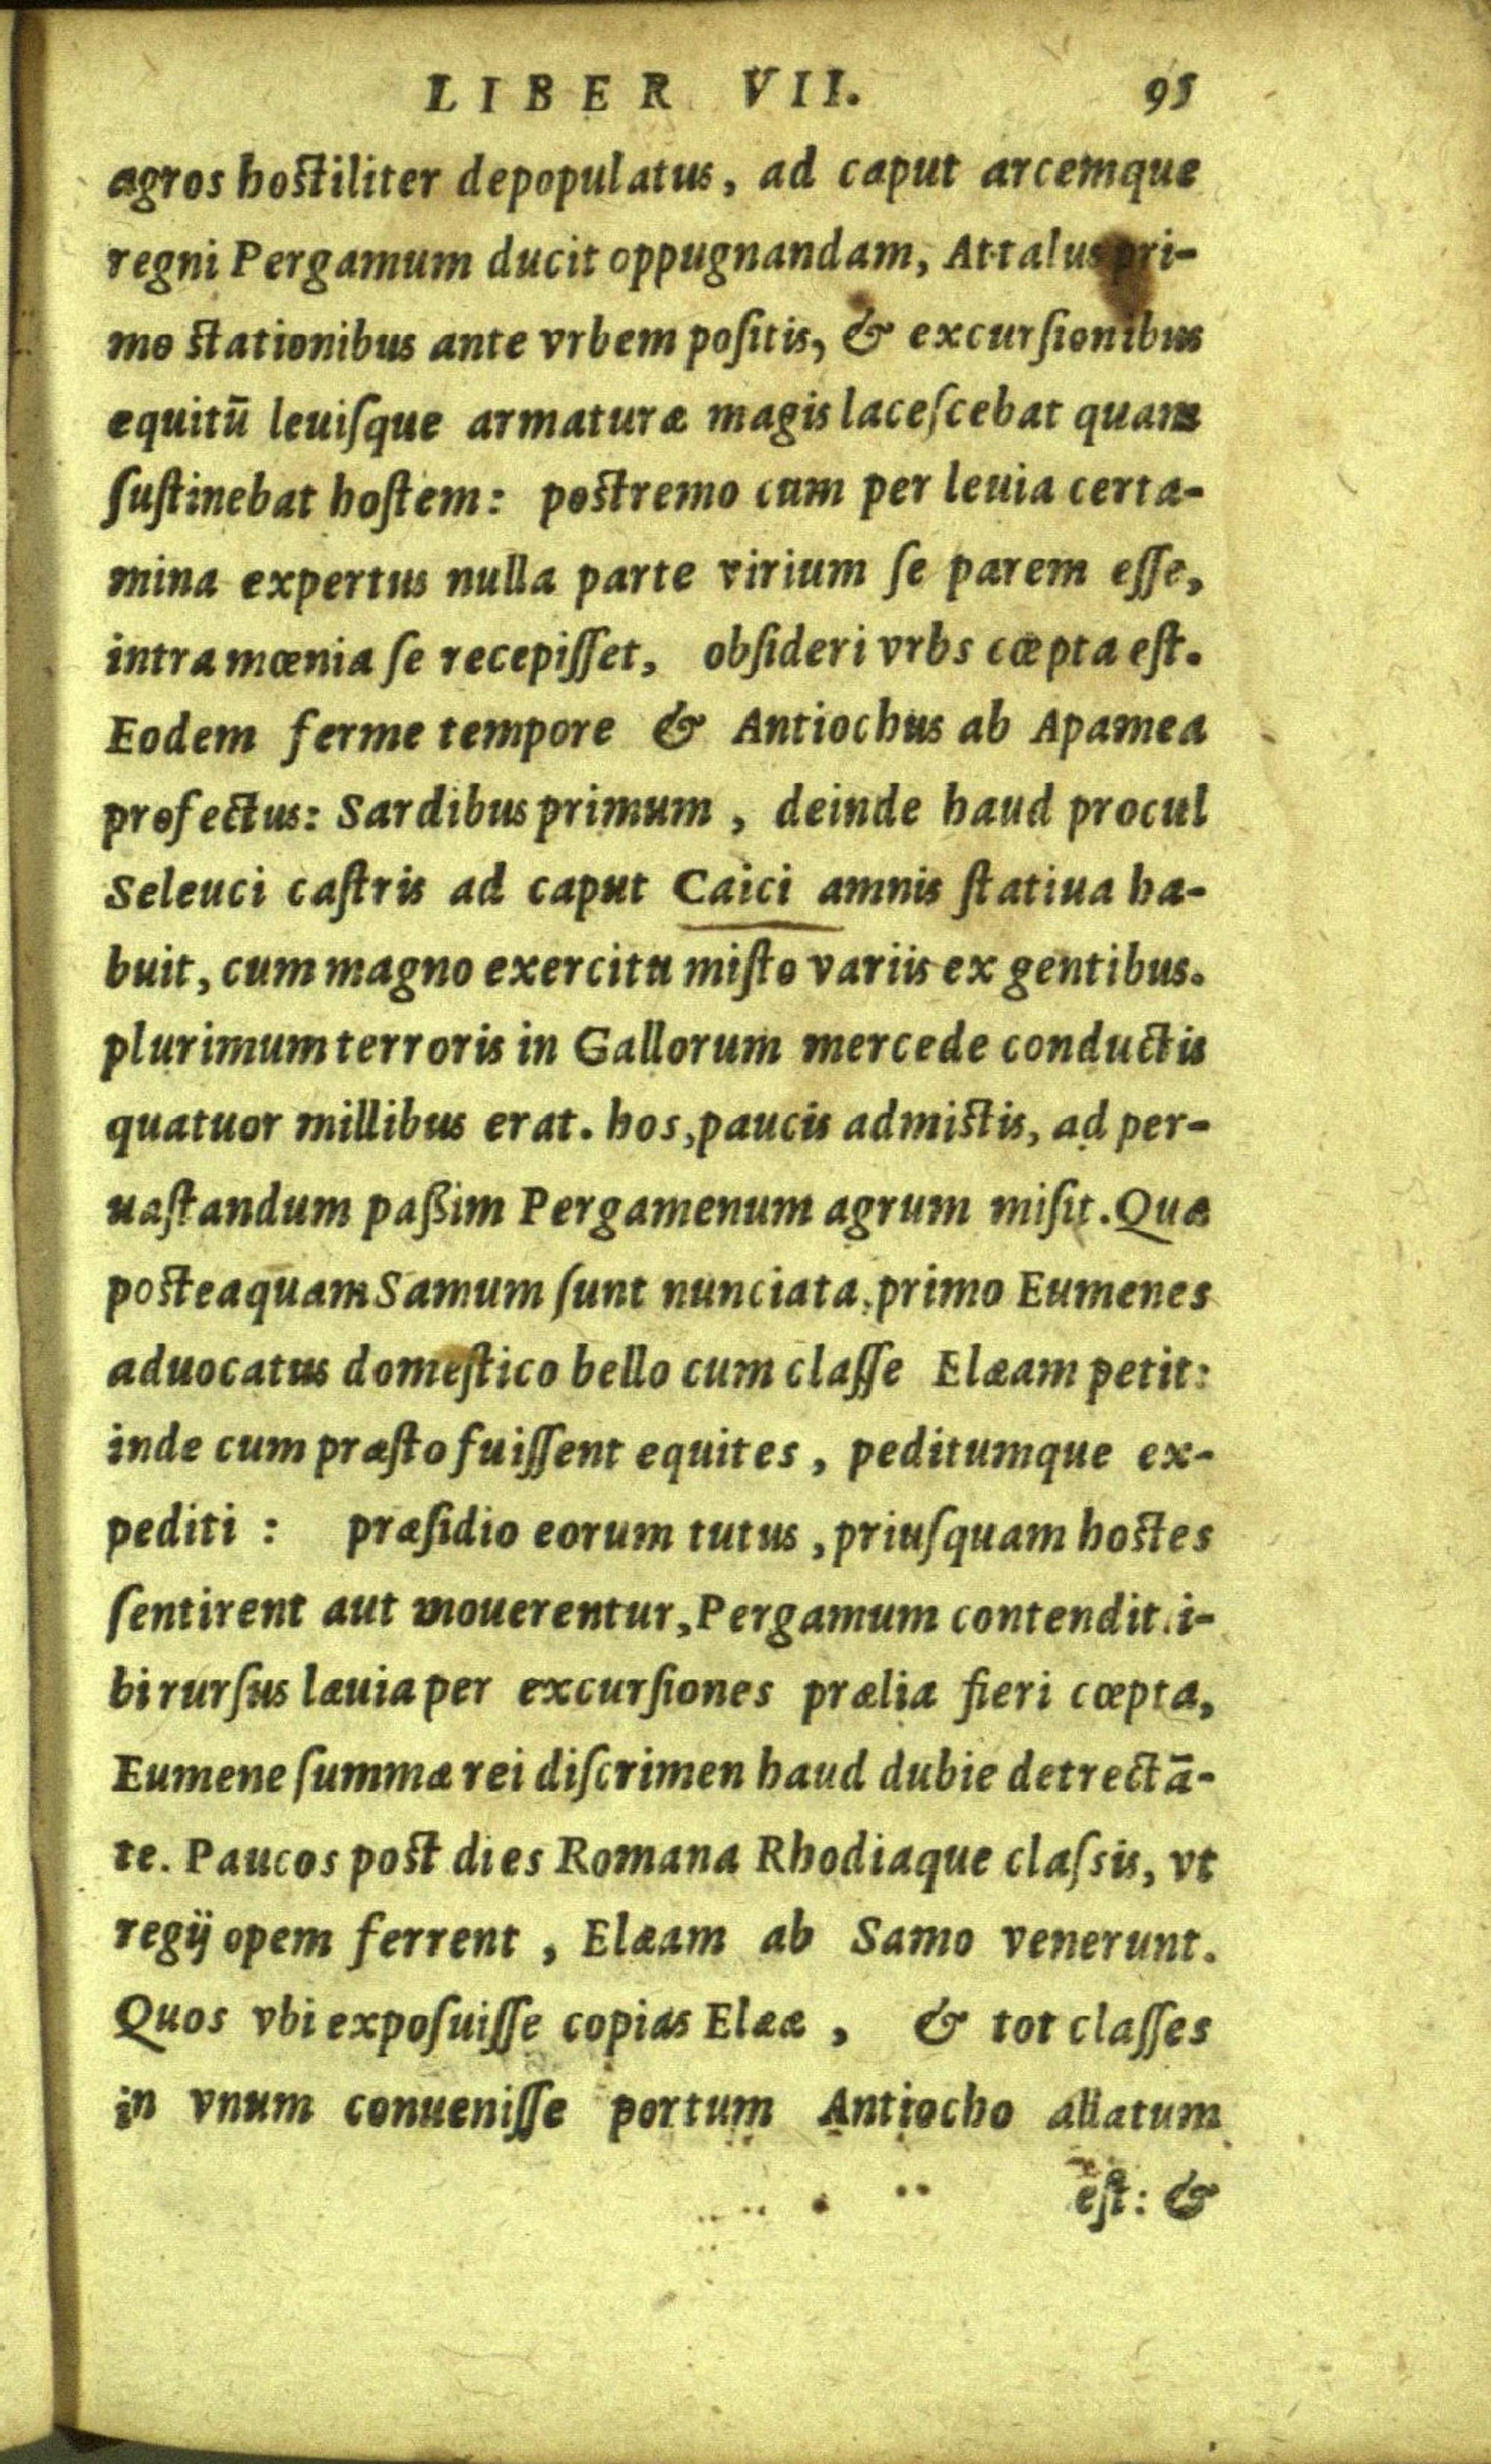 LIBER VII. 95
agros hostiliter depopulatus, ad caput arcemque
regni Pergamum ducit oppugnandam, Attalus pri-
mo stationibus ante vrbem poſitis, & excurſionibus
equitū leuiſque armaturæ magis laceſcebat quam
ſuſtinebat hoſtem: postremo cum per leuia certa-
mina expertus nulla parte virium ſe parem eſſe,
intra mœnia ſe recepiſſet, obſideri vrbs cœpta eſt.
Eodem ferme tempore & Antiochus ab Apamea
profectus: Sardibus primum, deinde haud procul
Seleuci caſtris ad caput Caici amnis ſtatiua ha-
buit, cum magno exercitu miſto variis ex gentibus.
plurimum terroris in Gallorum mercede conductis
quatuor millibus erat. hos, paucis admistis, ad per-
uaſtandum paßim Pergamenum agrum miſit. Quæ
posteaquam Samum ſunt nunciata, primo Eumenes
aduocatus domeſtico bello cum claſſe Elæam petit:
inde cum præſto fuiſſent equites, peditumque ex-
pediti : præſidio eorum tutus, priuſquam hostes
ſentirent aut mouerentur, Pergamum contendit. i-
bi rurſus læuia per excurſiones prælia fieri cœpta,
Eumene ſummæ rei diſcrimen haud dubie detrectā-
te. Paucos post dies Romana Rhodiaque claſsis, vt
regij opem ferrent, Elæam ab Samo venerunt.
Quos vbi expoſuiſſe copias Elææ, & tot claſſes
in vnum conueniſſe portum Antiocho allatum
eſt: &